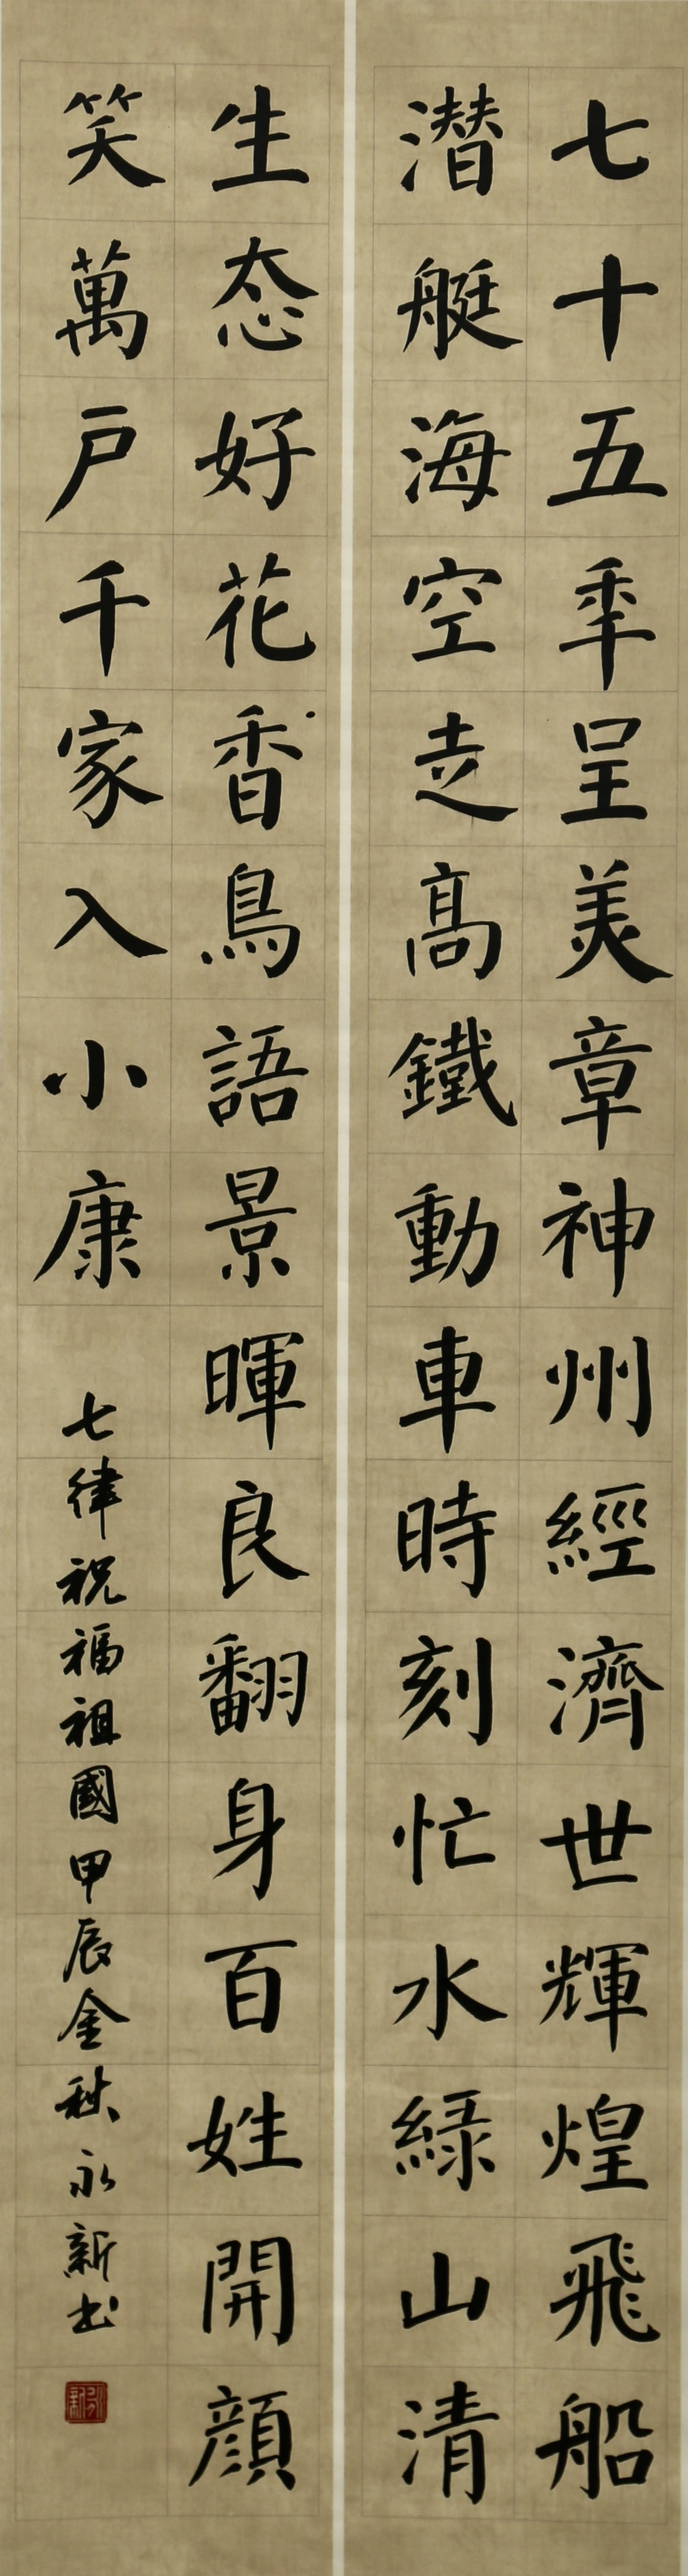 七十五年呈美章神州經濟世輝煌飛船
潜艇海空走高鐵動車時刻忙水緑山清
生态好花香鳥語景暉良翻身百姓開顔
笑萬戶千家入小康
七律祝福祖國甲辰金秋永新书